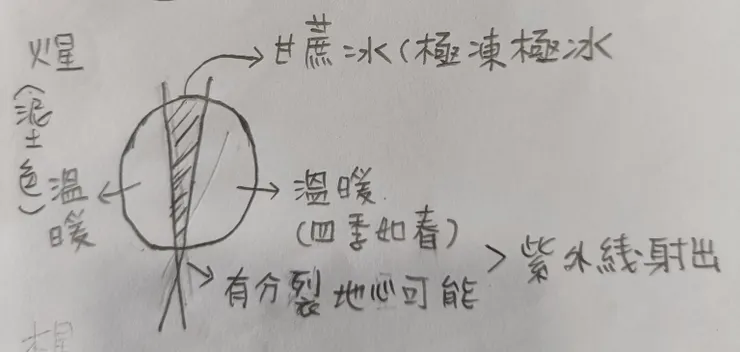 甘蔗冰(極凍極冰
火星
(泥土色)
溫暖
溫暖
(四季如春)
有分裂地心可能 > 紫外綫射出